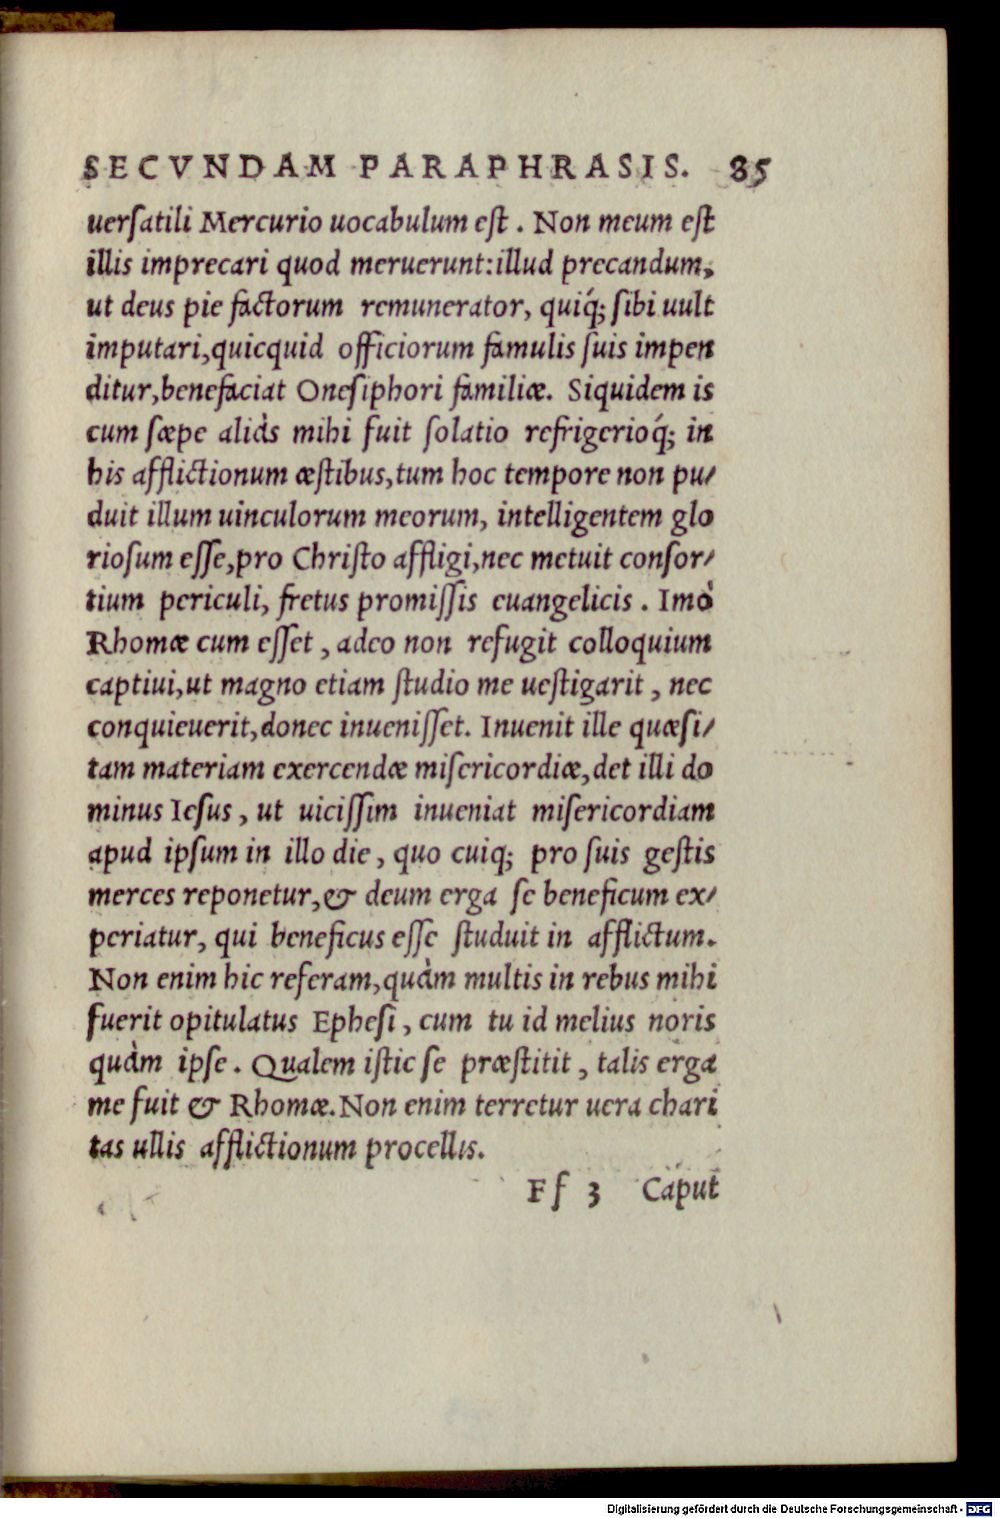 SECVNDAM PARAPHRASIS. 85
uerſatili Mercurio uocabulum eſt . Non meum eſt
illis imprecari quod meruerunt: illud precandum,
ut deus pie factorum remunerator, quiq́; ſibi uult
imputari, quicquid officiorum famulis ſuis impen
ditur, benefaciat Oneſiphori familiæ. Siquidem is
cum ſæpe aliàs mihi fuit ſolatio refrigerioq́; in
his afflictionum æſtibus, tum hoc tempore non pu/
duit illum uinculorum meorum, intelligentem glo
rioſum eſſe, pro Chriſto affligi, nec metuit conſor/
tium periculi, fretus promiſſis euangelicis . Imò
Rhomæ cum eſſet , adeo non refugit colloquium
captiui, ut magno etiam ſtudio me ueſtigarit , nec
conquieuerit, donec inueniſſet. Inuenit ille quæſi/
tam materiam exercendæ miſericordiæ, det illi do
minus Ieſus , ut uiciſſim inueniat miſericordiam
apud ipſum in illo die , quo cuiq; pro ſuis geſtis
merces reponetur, & deum erga ſe beneficum ex/
periatur, qui beneficus eſſe ſtuduit in afflictum.
Non enim hic referam, quàm multis in rebus mihi
fuerit opitulatus Epheſi , cum tu id melius noris
quàm ipſe . Qualem iſtic ſe præſtitit , talis erga
me fuit & Rhomæ. Non enim terretur uera chari
tas ullis afflictionum procellis.
Ff 3 Caput
Digitalisierung gefördert durch die Deutsche Forschungsgemeinschaft - DFG